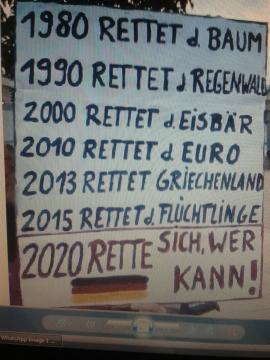 1980 RETTET d. BAUM
1990 RETTET d REGENWALD
2000 RETTET d. EiSBÄR
2010 RETTET d EURO
2013 RETTET GRIECHENLAND
2015 RETTET d. FLÜCHTLINGE
2020 RETTE SICH, WER
KANN!
WhatsApp Image 1 ...